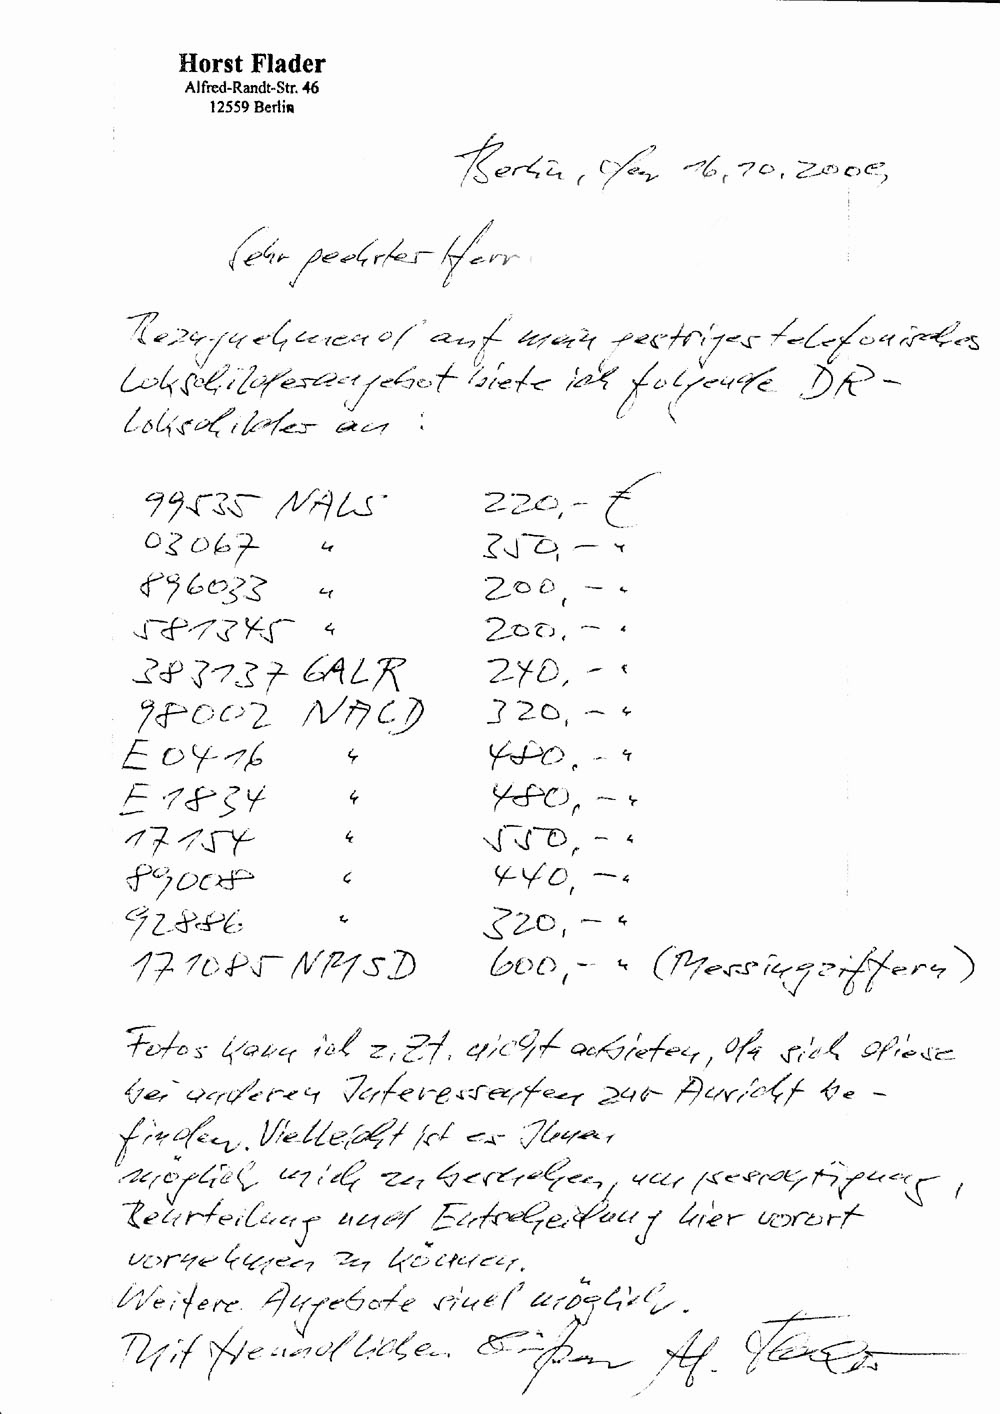 Horst Flader
Alfred-Randt-Str. 46
12559 Berlin
Berlin, den 16.10.2006
Sehr geehrter Herr
Bezugnehmend auf mein gestriges telefonisches
Lokschilderangebot biete ich folgende DR-
Lokschilder an :
99535 NALS 220,- €
03067 " 350,- "
896033 " 200,- "
581345 " 200,- "
383137 GALR 240,- "
98002 NALD 320,- "
E 04 16 " 480,- "
E 18 34 " 480,- "
17 154 " 550,- "
89008 " 440,- "
92886 " 320,- "
171085 NMSD 600,- " (Messingziffern)
Fotos kann ich z.Zt. nicht anbieten, da sich diese
bei anderen Interessenten zur Ansicht be-
finden. Vielleicht ist es Ihnen
möglich mich zu besuchen, um Besichtigung,
Beurteilung und Entscheidung hier vorort
vornehmen zu können.
Weitere Angebote sind möglich.
Mit freundlichen Grüßen H. Flader